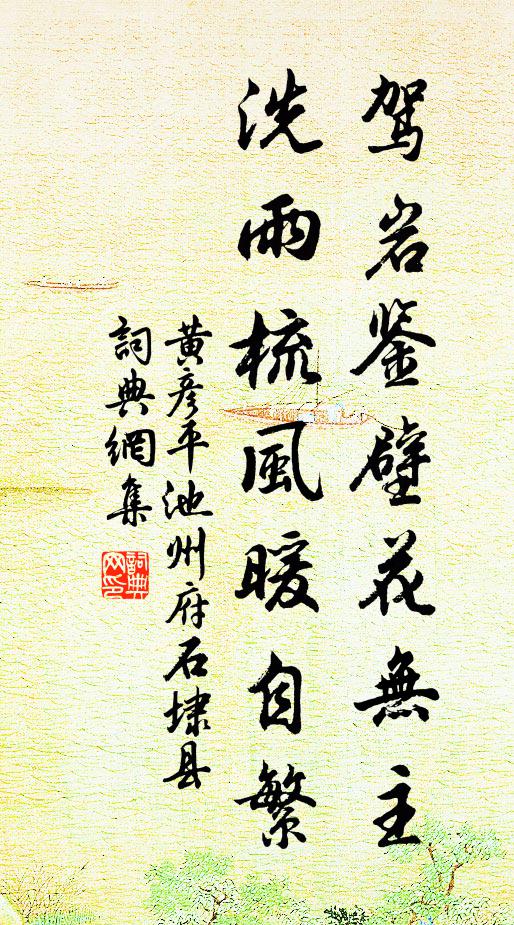 驾岩鉴壁花無主
洗雨梳風暖自繁
黄彦平池州府石埭县
詞典網集
詞典
网印